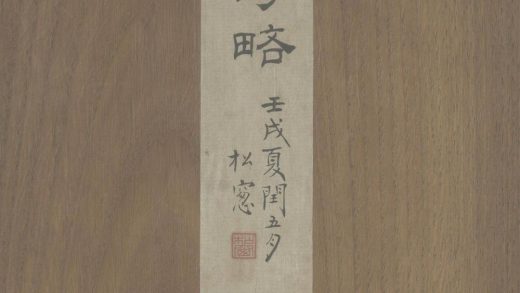 略
壬戌夏閏五月
松窓